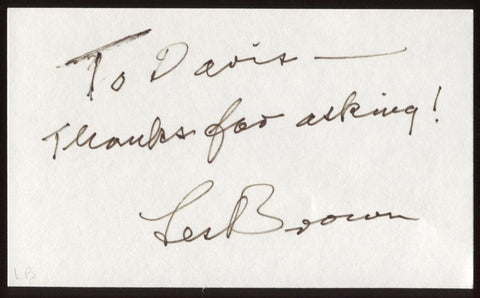 To Davis —
Thanks for asking!
Les Brown
LB